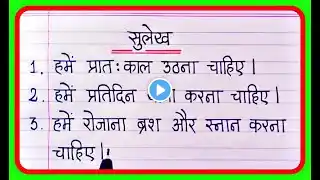 सुलेख
1. हमें प्रातःकाल उठना चाहिए।
2. हमें प्रतिदिन करना चाहिए।
3. हमें रोजाना ब्रश और स्नान करना
चाहिए।